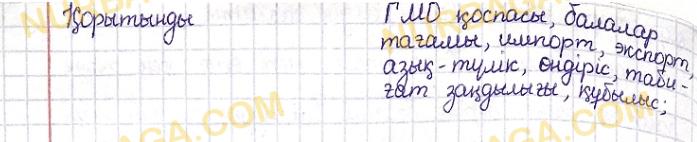 Қорытынды
ГМО қоспасы, балалар
тағамы, импорт, экспорт,
азық-түлік, өндіріс, таби-
ғат заңдылығы, құбылыс;